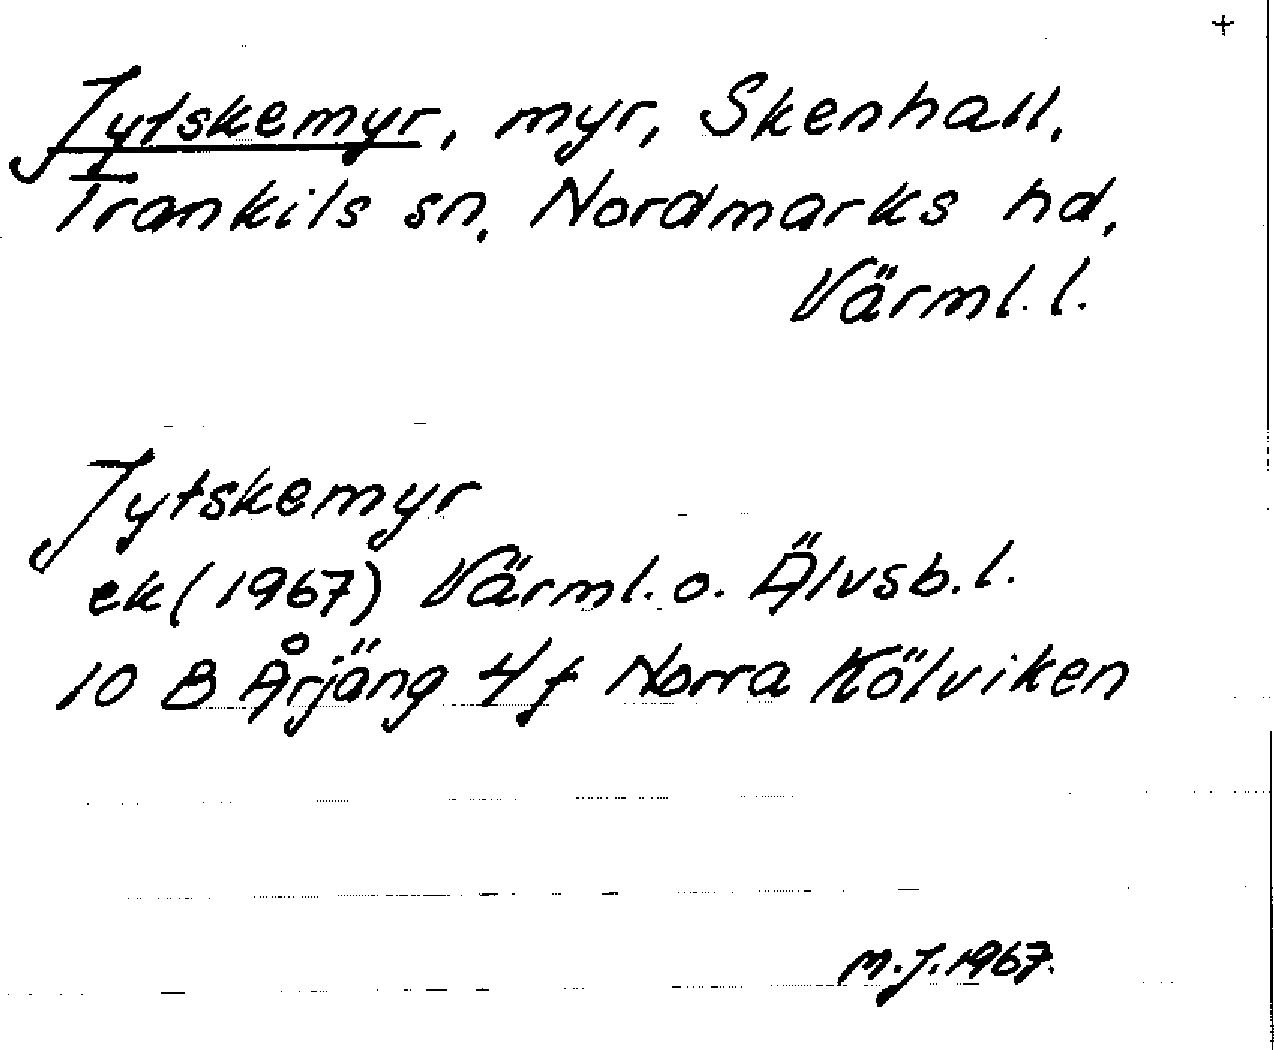 +
Jytskemyr, myr, Skenhall,
Trankils sn, Nordmarks hd,
Värml. l.
Jytskemyr
ek (1967) Värml. o. Älvsb. l.
10 B Årjäng 4f Norra Kölviken
M.J. 1967.